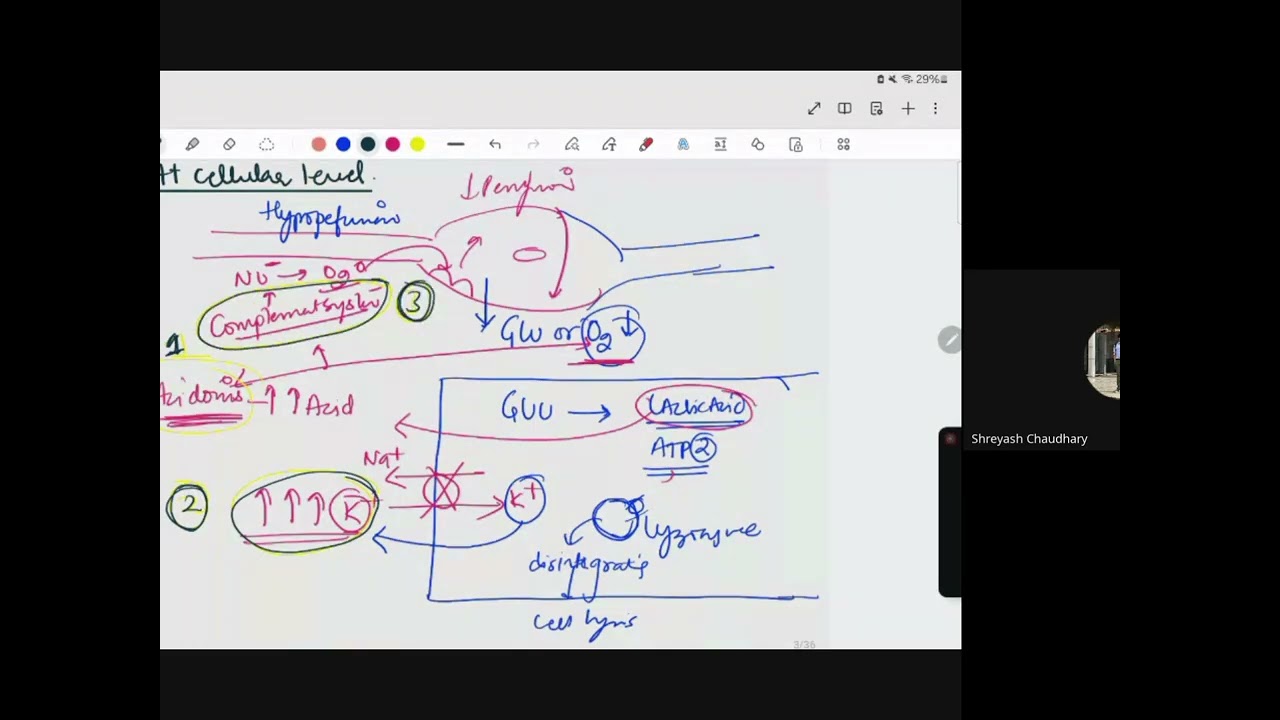 29%
At cellular level.
↓Perfusion
Hypoperfusion
Nu → O2
Complement system
3
Glu or O2 ↓
1
Acidosis
↑ ↑ Acid
Glu → Lactic Acid
ATP 2
Na+
2
↑ ↑ ↑ K+
K+
lysozyme
disintegrate
Cell lysis
3/36
Shreyash Chaudhary